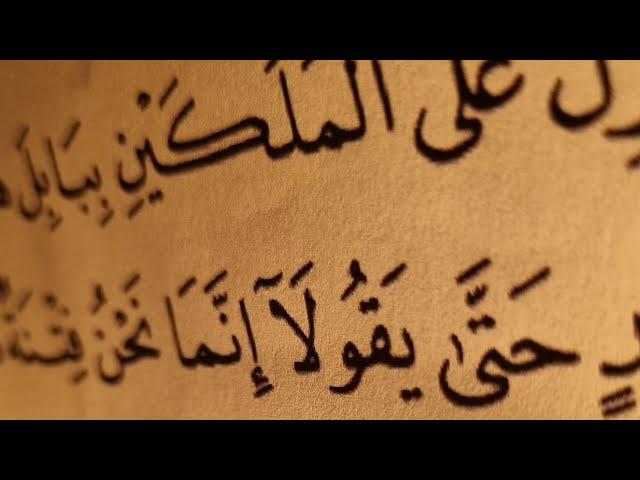 عَلَى ٱلْمَلَكَيْنِ بِبَابِلَ
حَتَّىٰ يَقُولَآ إِنَّمَا نَحْنُ فِتْنَةٌ